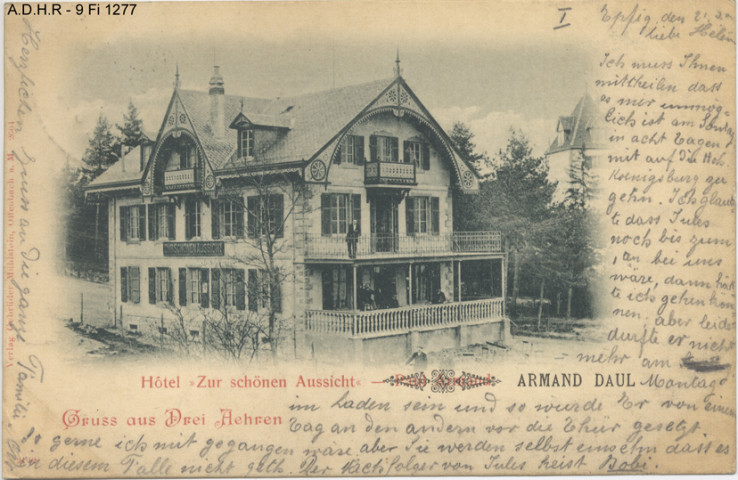 A.D.H.R - 9 Fi 1277
I
Epfig, den 21.
liebe Helen
Ich muss Ihnen
mittheilen dass
es mir unmög-
lich ist am Sontag
in acht Tagen
mit auf die Hoh
Koenigsburg zu
gehn. Ich glaub
te dass Jules
noch bis zum
1, an bei uns
wäre, dann hät
te ich gehen kön
nen. aber leider
durfte er nicht
mehr am
Montag
im Laden sein und so wurde Er von einem
Tag an den andern vor die Thür gesetzt.
So gerne ich mit gegangen wäre aber Sie werden selbst einsehn dass es
in diesem Falle nicht geth. Der Nachfolger von Jules heist Bobi.
Hôtel »Zur schönen Aussicht« —
ARMAND DAUL
Gruss aus Drei Aehren
Herzlichen Gruss an die ganze Familie
Verlag Gebrüder Mühlstein, Offenbach a. M.